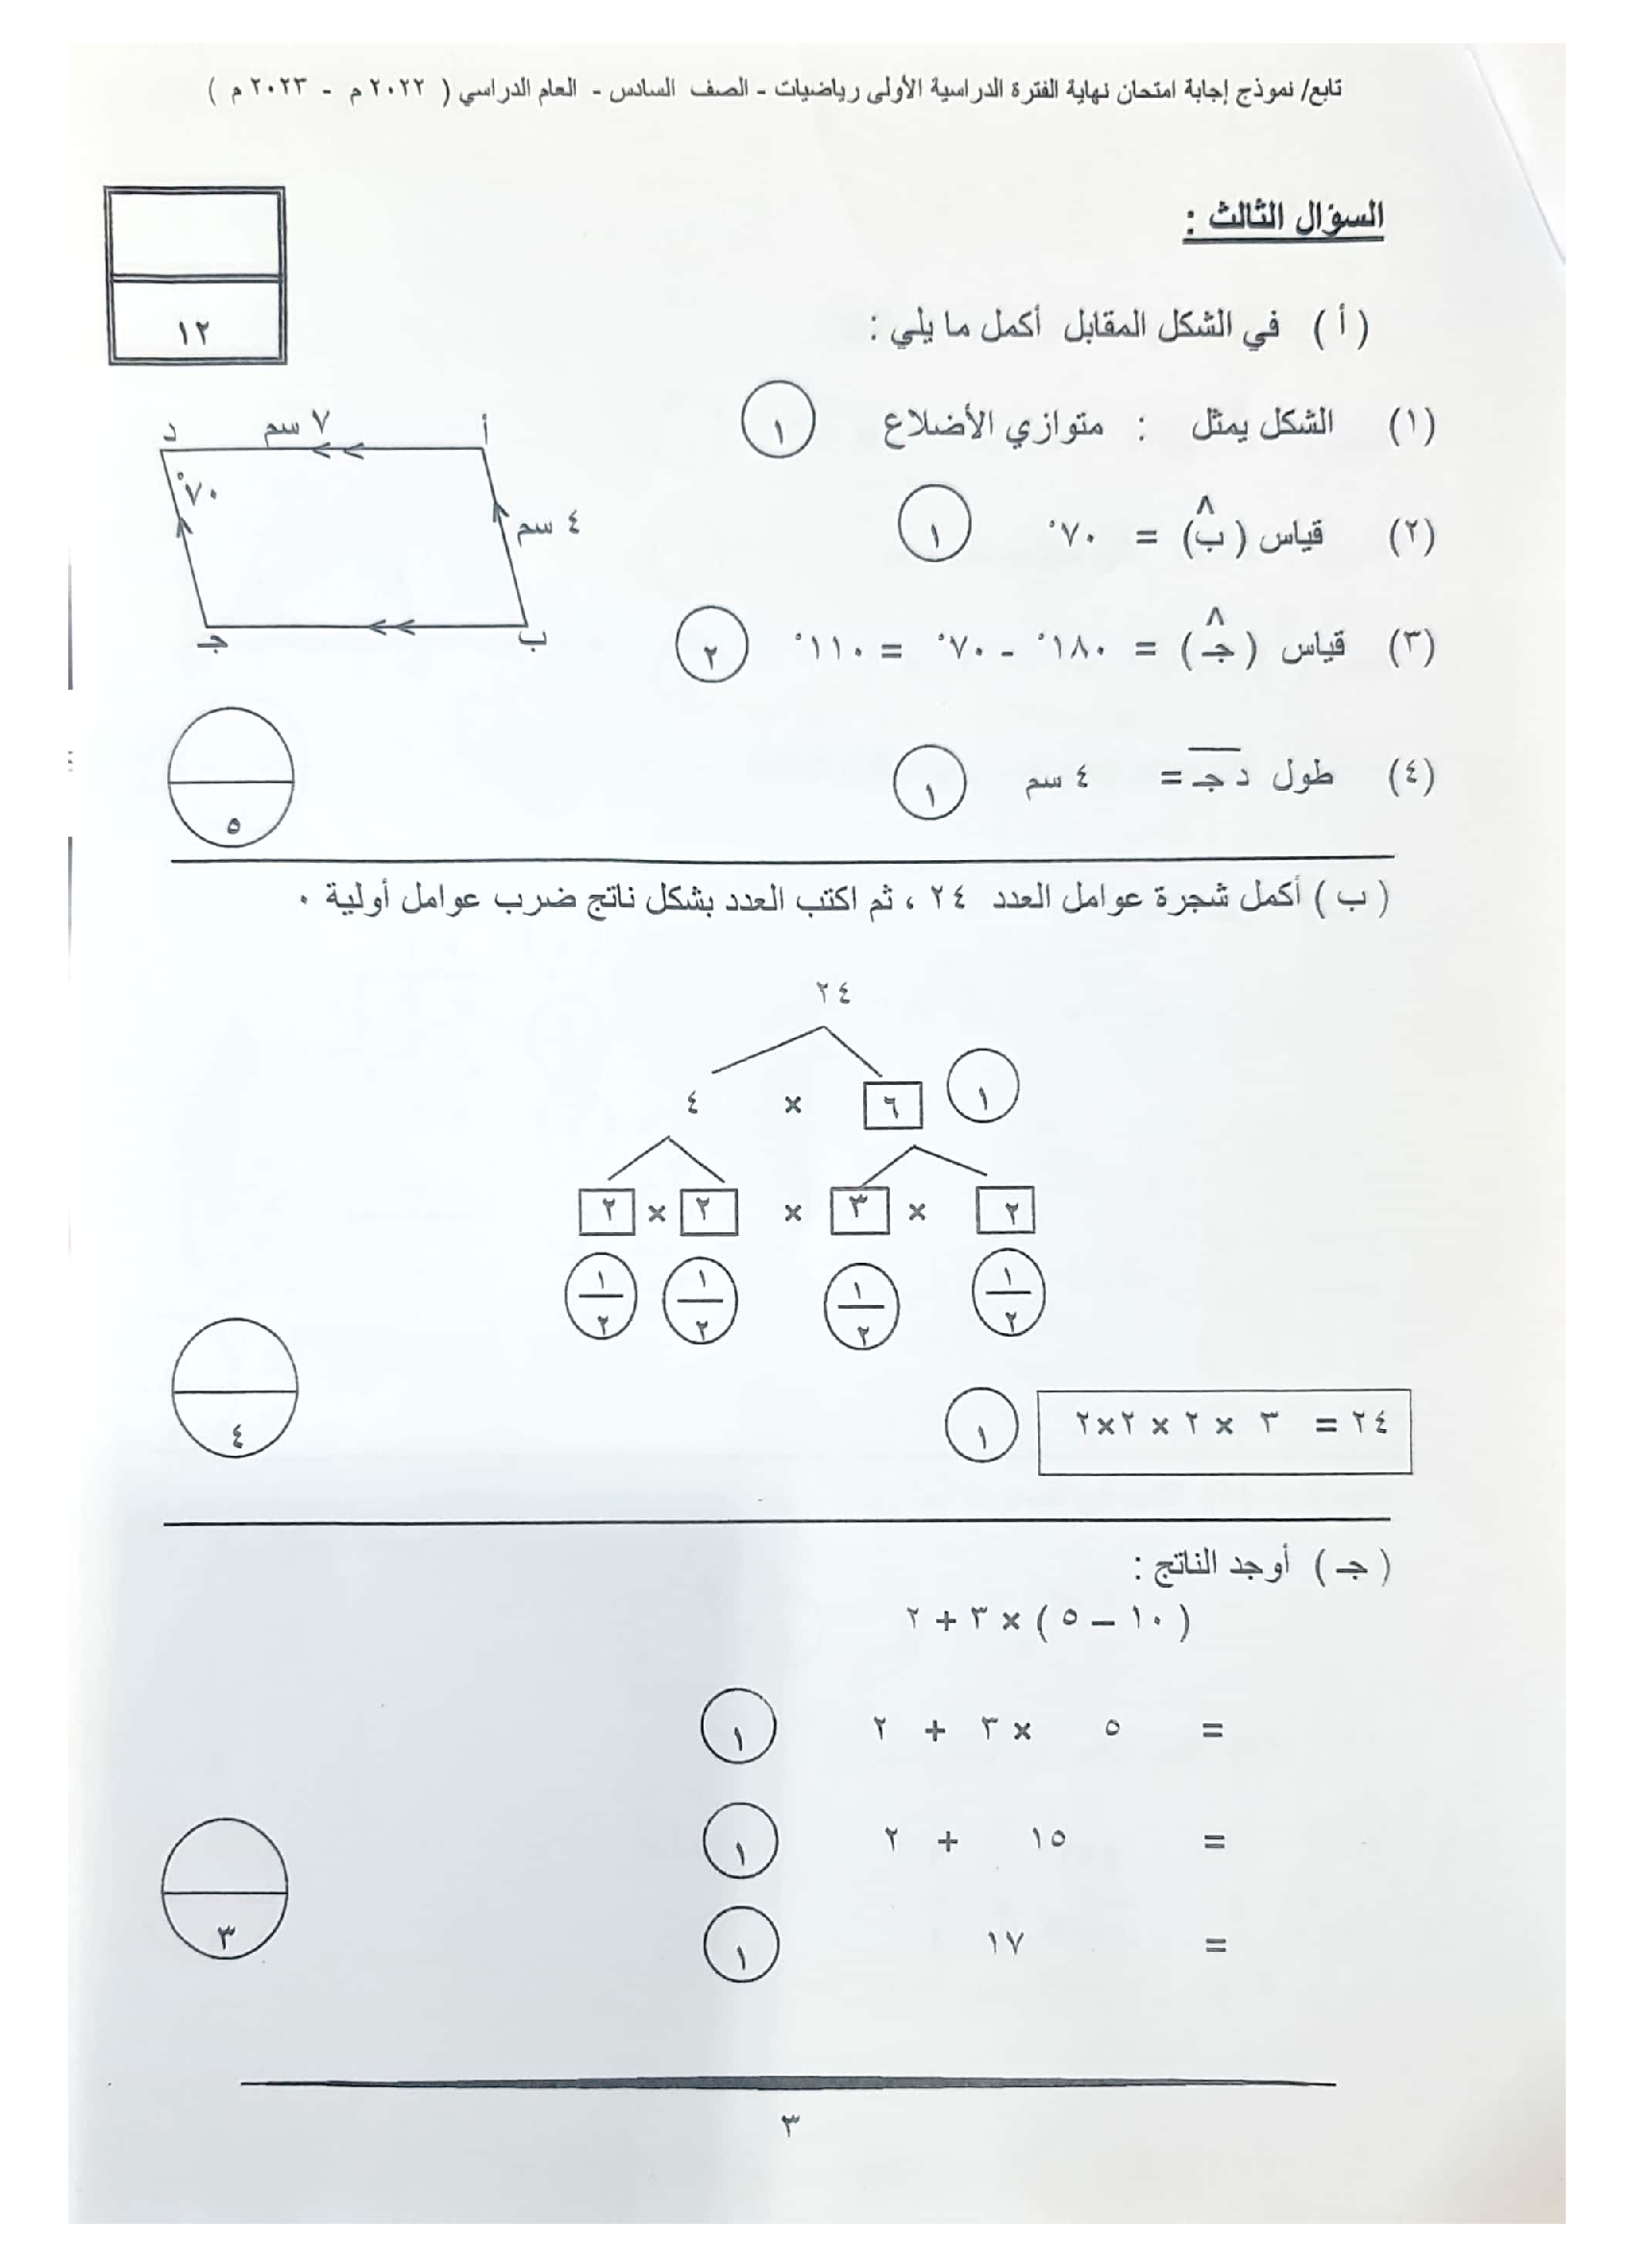 تابع/ نموذج إجابة امتحان نهاية الفترة الدراسية الأولى رياضيات - الصف السادس - العام الدراسي ( ٢٠٢٢ م - ٢٠٢٣ م )
السؤال الثالث :
١٢
( أ ) في الشكل المقابل أكمل ما يلي :
(١) الشكل يمثل : متوازي الأضلاع ١
أ ٧ سم د
٧٠°
٤ سم
ب جـ
(٢) قياس (ب^) = ٧٠° ١
(٣) قياس (جـ^) = ١٨٠° - ٧٠° = ١١٠° ٢
(٤) طول د جـ = ٤ سم ١
٥
( ب ) أكمل شجرة عوامل العدد ٢٤ ، ثم اكتب العدد بشكل ناتج ضرب عوامل أولية ٠
٢٤
١ ٦ × ٤
٢ × ٣ × ٢ × ٢
١/٢ ١/٢ ١/٢ ١/٢
٢٤ = ٣ × ٢ × ٢×٢ ١
٤
( جـ ) أوجد الناتج :
( ١٠ – ٥ ) × ٣ + ٢
= ٥ × ٣ + ٢ ١
= ١٥ + ٢ ١
= ١٧ ١
٣
٣